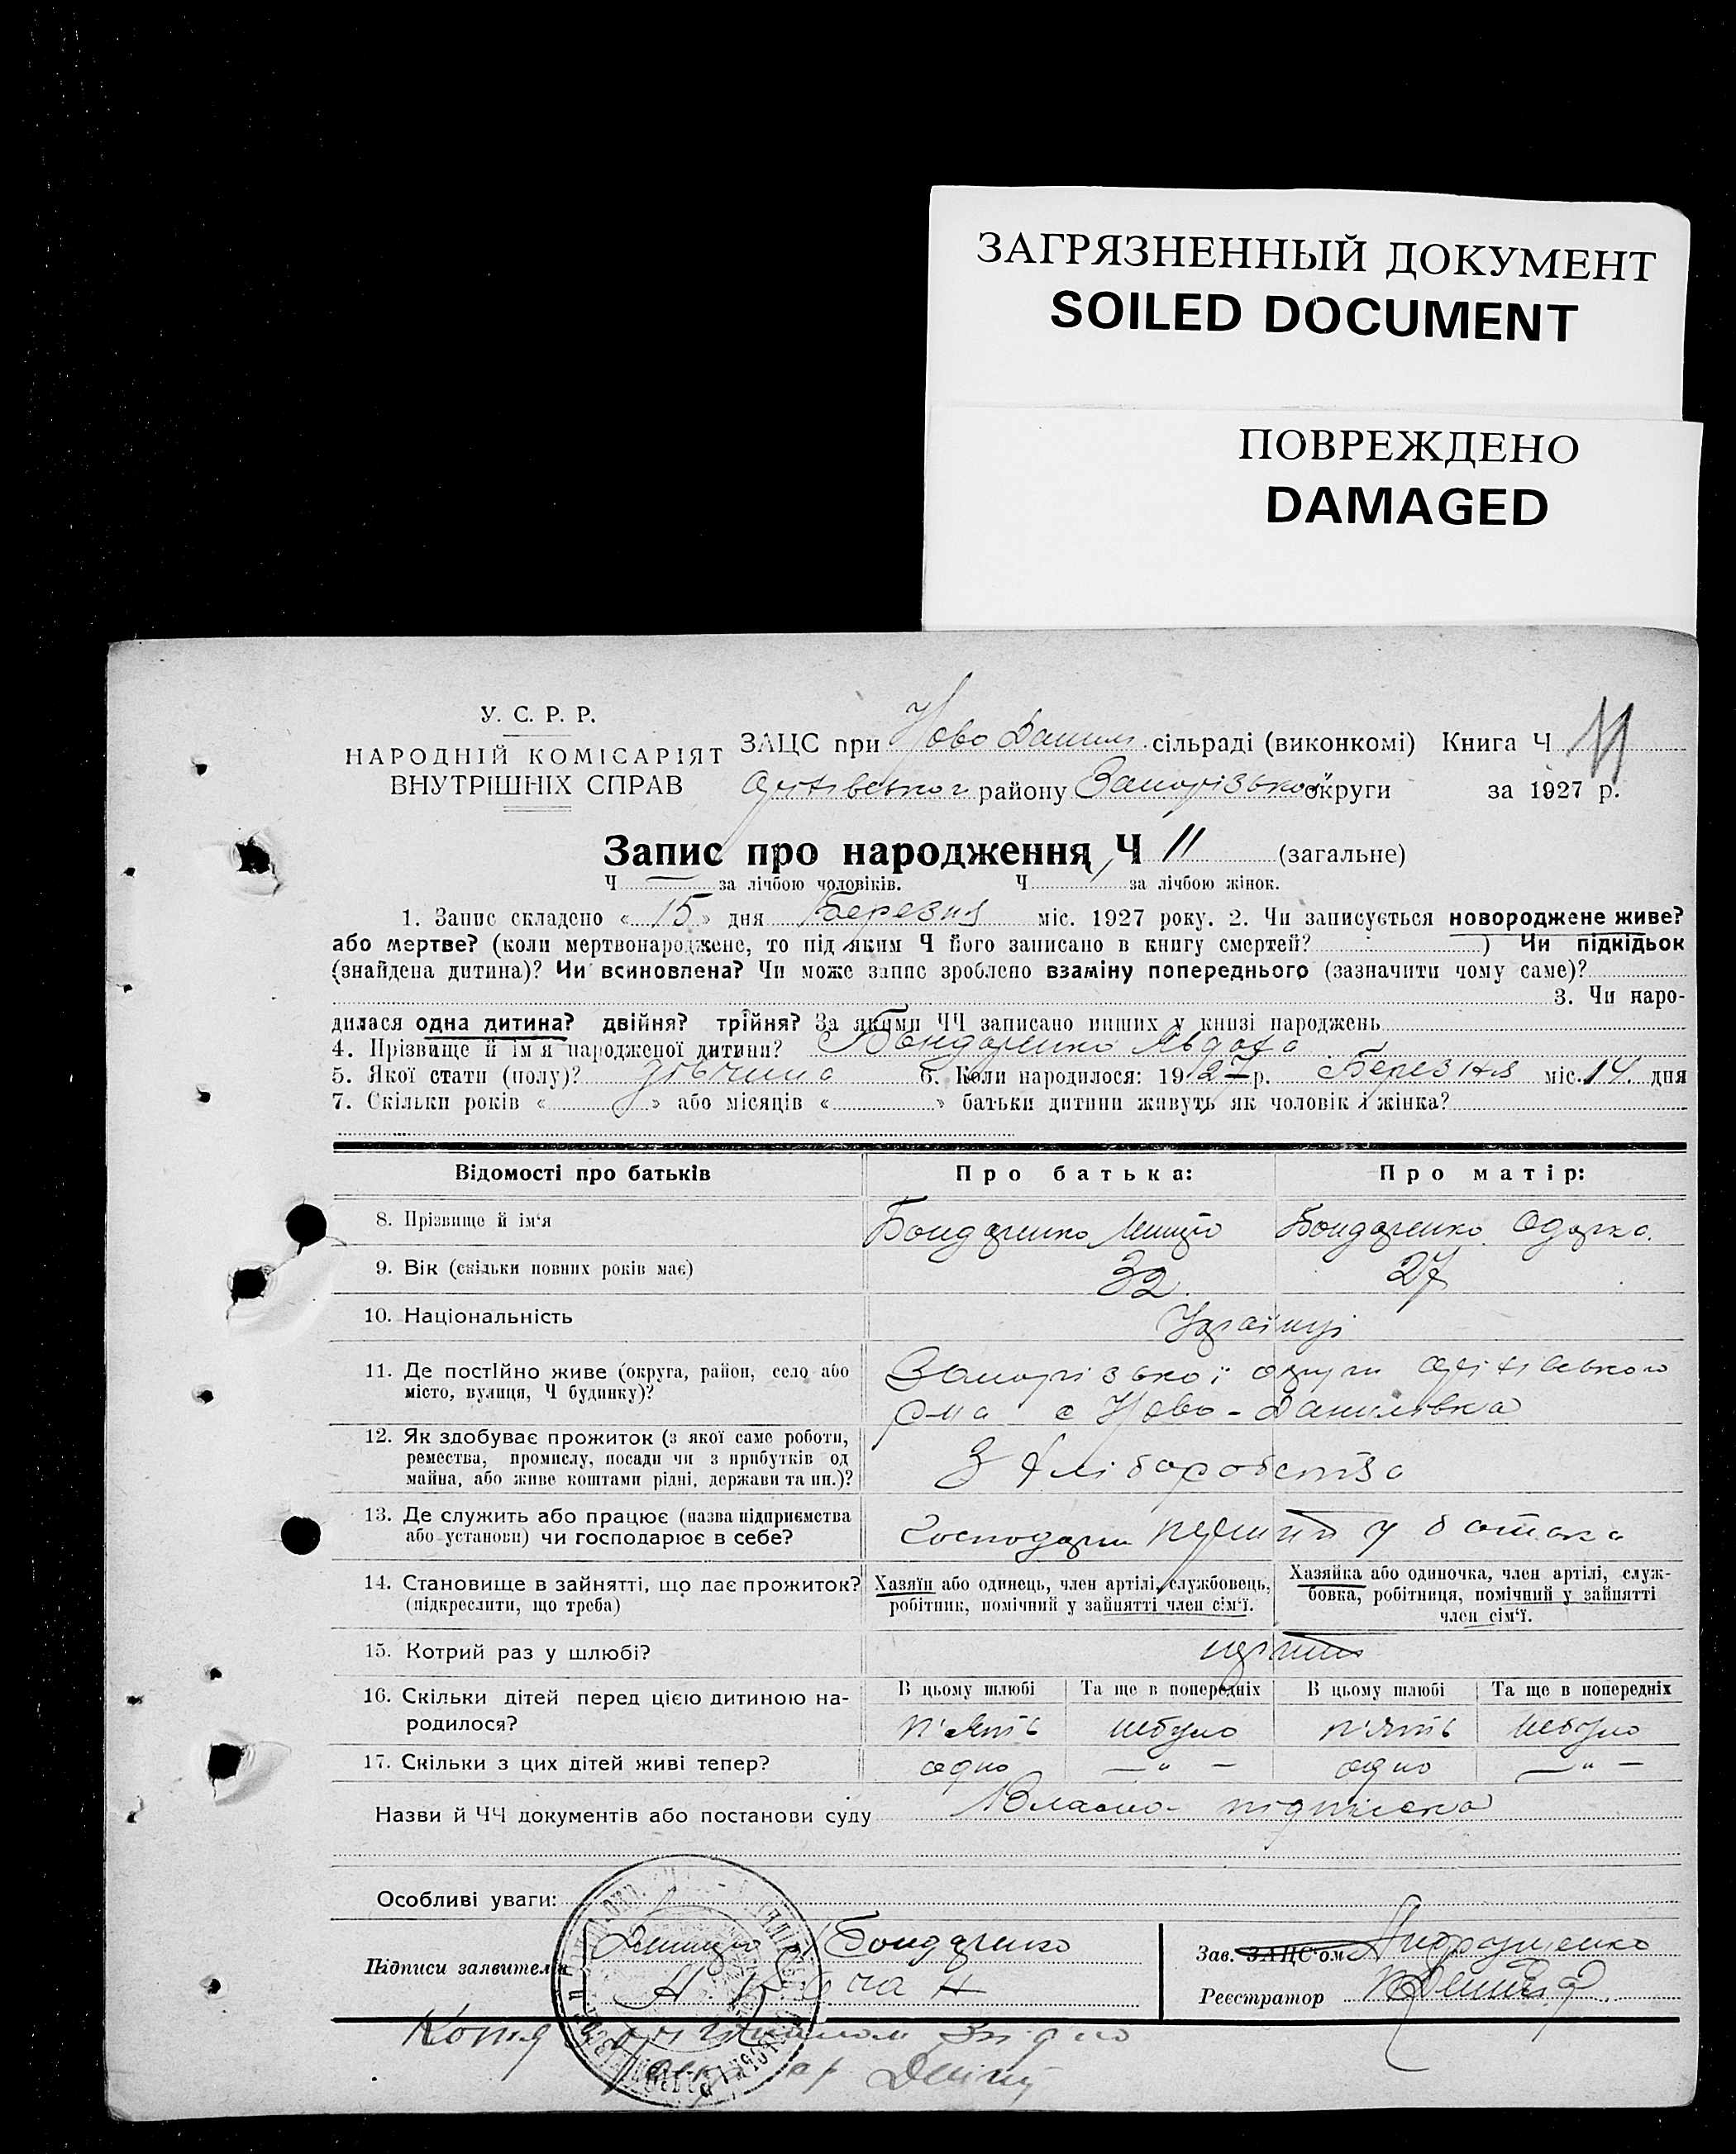 ЗАГРЯЗНЕННЫЙ ДОКУМЕНТ
SOILED DOCUMENT
ПОВРЕЖДЕНО
DAMAGED
У. С. Р. Р.
НАРОДНІЙ КОМІСАРІЯТ
ВНУТРІШНІХ СПРАВ
ЗАЦС при Ново Данил. сільраді (виконкомі) Книга Ч
району Запорізької округи за 1927 р.
Запис про народження Ч 11 (загальне)
Ч — за лічбою чоловіків. Ч за лічбою жінок.
1. Запис складено « 15 » дня Березня міс. 1927 року. 2. Чи записується новороджене живе?
або мертве? (коли мертвонароджене, то під яким Ч його записано в книгу смертей? ) Чи підкідьок
(знайдена дитина)? Чи всиновлена? Чи може запис зроблено взаміну попереднього (зазначити чому саме)?
3. Чи наро-
дилася одна дитина? двійня? трійня? За якими ЧЧ записано инших у книзі народжень
4. Прізвище й ім'я народженої дитини? Бондаренко Явдоха
5. Якої стати (полу)? дівчина 6. Коли народилося: 1927 р. Березня міс. 14 дня
7. Скільки років « » або місяців « » батьки дитини живуть як чоловік і жінка?
Відомості про батьків Про батька: Про матір:
8. Прізвище й ім'я Бондаренко Бондаренко Одарка.
9. Вік (скільки повних років має) 32 27
10. Національність Українці
11. Де постійно живе (округа, район, село або Запорізької округи
місто, вулиця, Ч будинку)? р-на с Ново-Данилівка
12. Як здобуває прожиток (з якої саме роботи,
ремества, промислу, посади чи з прибутків од З хліборобства
майна, або живе коштами рідні, держави та ин.)?
13. Де служить або працює (назва підприємства
або установи) чи господарює в себе? у батька
14. Становище в зайнятті, що дає прожиток? Хазяїн або одинець, член артілі, службовець, Хазяйка або одиночка, член артілі, служ-
(підкреслити, що треба) робітник, помічний у зайнятті член сім'ї. бовка, робітниця, помічний у зайнятті
член сім'ї.
15. Котрий раз у шлюбі? перший
16. Скільки дітей перед цією дитиною на- В цьому шлюбі Та ще в попередніх В цьому шлюбі Та ще в попередніх
родилося? п'ять небуло п'ять небуло
17. Скільки з цих дітей живі тепер? одно — " — одно — " —
Назви й ЧЧ документів або постанови суду Власна підписка
Особливі уваги:
Підписи заявителів Бондаренко Зав. ЗАЦС'ом
Реєстратор
Копія з оригіналом згідно
Секретар